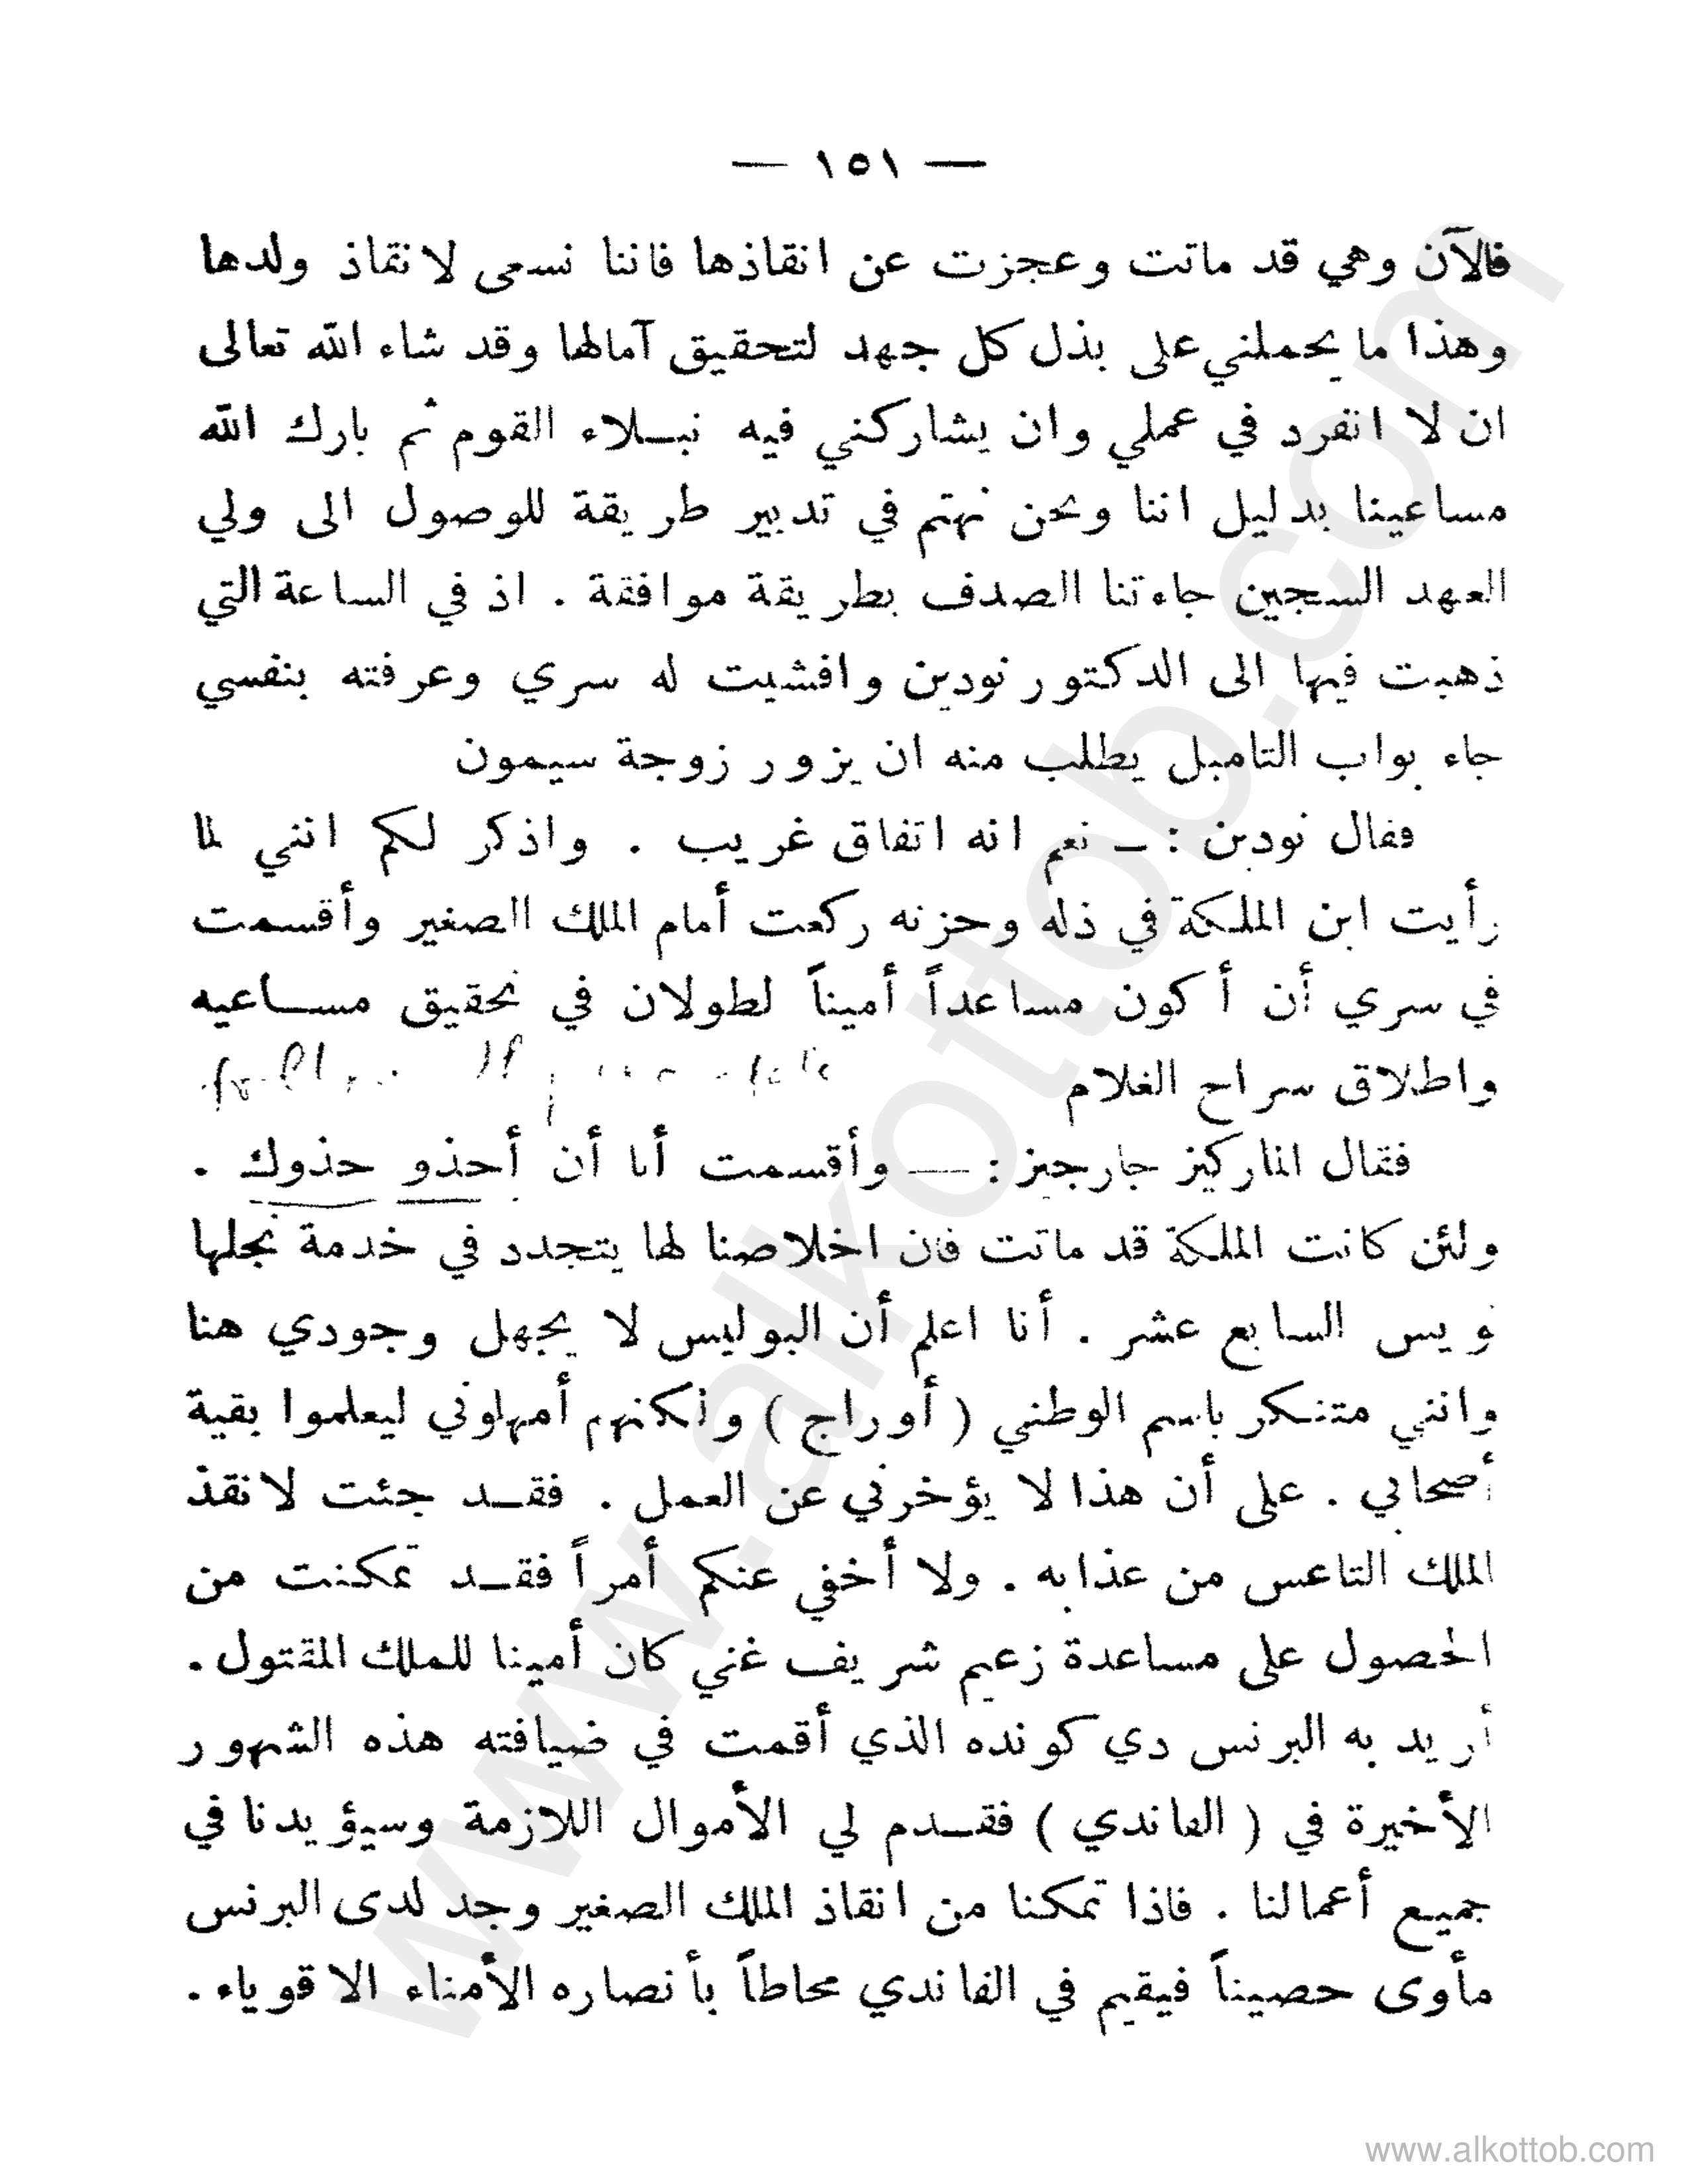 — ١٥١ —
فالآن وهي قد ماتت وعجزت عن انقاذها فاننا نسعى لانقاذ ولدها
وهذا ما يحملني على بذل كل جهد لتحقيق آمالها وقد شاء الله تعالى
ان لا انفرد في عملي وان يشاركني فيه نبلاء القوم ثم بارك الله
مساعينا بدليل اننا ونحن نهتم في تدبير طريقة للوصول الى ولي
العهد السجين جاءتنا الصدف بطريقة موافقة . اذ في الساعة التي
ذهبت فيها الى الدكتور نودين وافشيت له سري وعرفته بنفسي
جاء بواب التامبل يطلب منه ان يزور زوجة سيمون
فقال نودين : — نعم انه اتفاق غريب . واذكر لكم انني لما
رأيت ابن الملكة في ذله وحزنه ركعت أمام الملك الصغير وأقسمت
في سري أن أكون مساعداً أميناً لطولان في تحقيق مساعيه
واطلاق سراح الغلام
فقال الماركيز جارجيز : — وأقسمت أنا أن أحذو حذوك .
ولئن كانت الملكة قد ماتت فان اخلاصنا لها يتجدد في خدمة نجلها
لويس السابع عشر . أنا اعلم أن البوليس لا يجهل وجودي هنا
وانني متنكر باسم الوطني ( أوراج ) ولكنهم أمهلوني ليعلموا بقية
أصحابي . على أن هذا لا يؤخرني عن العمل . فقد جئت لانقذ
الملك التاعس من عذابه . ولا أخفي عنكم أمراً فقد تمكنت من
الحصول على مساعدة زعيم شريف غني كان أمينا للملك المقتول .
أريد به البرنس دي كونده الذي أقمت في ضيافته هذه الشهور
الأخيرة في ( الفاندي ) فقدم لي الأموال اللازمة وسيؤيدنا في
جميع أعمالنا . فاذا تمكنا من انقاذ الملك الصغير وجد لدى البرنس
مأوى حصيناً فيقيم في الفاندي محاطاً بأنصاره الأمناء الاقوياء .
www.alkottob.com
www.alkottob.com